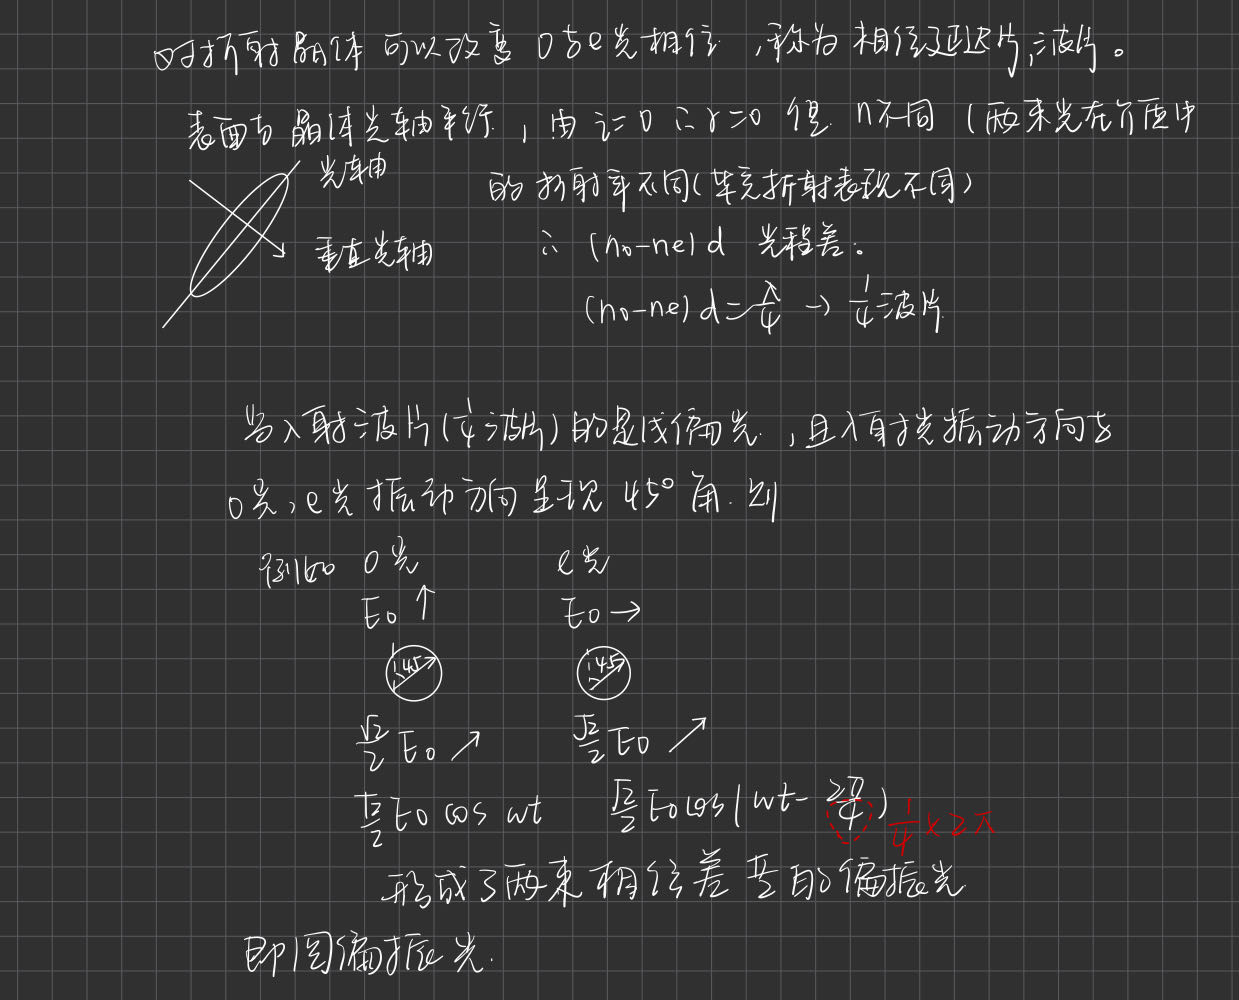 双折射晶体可以改变 o与e光相位,称为相位延迟片,波片。
表面与晶体光轴平行,由 i=0 ∴ r=0 但 n不同 (两束光在介质中
光轴
的折射率不同(毕竟折射表现不同)
垂直光轴
∴ (no-ne)d 光程差。
(no-ne)d=λ/4 → 1/4 波片
当入射波片(1/4波片)的是线偏光,且入射光振动方向与
o光,e光振动方向呈现 45° 角.则
例如 o光 e光
E0 ↑ E0 →
45 45
√2/2 E0 ↗ √2/2 E0 ↗
√2/2 E0 cos wt √2/2 E0 cos(wt- 2π/4) 1/4 × 2π
形成了两束相位差 的偏振光
即圆偏振光.